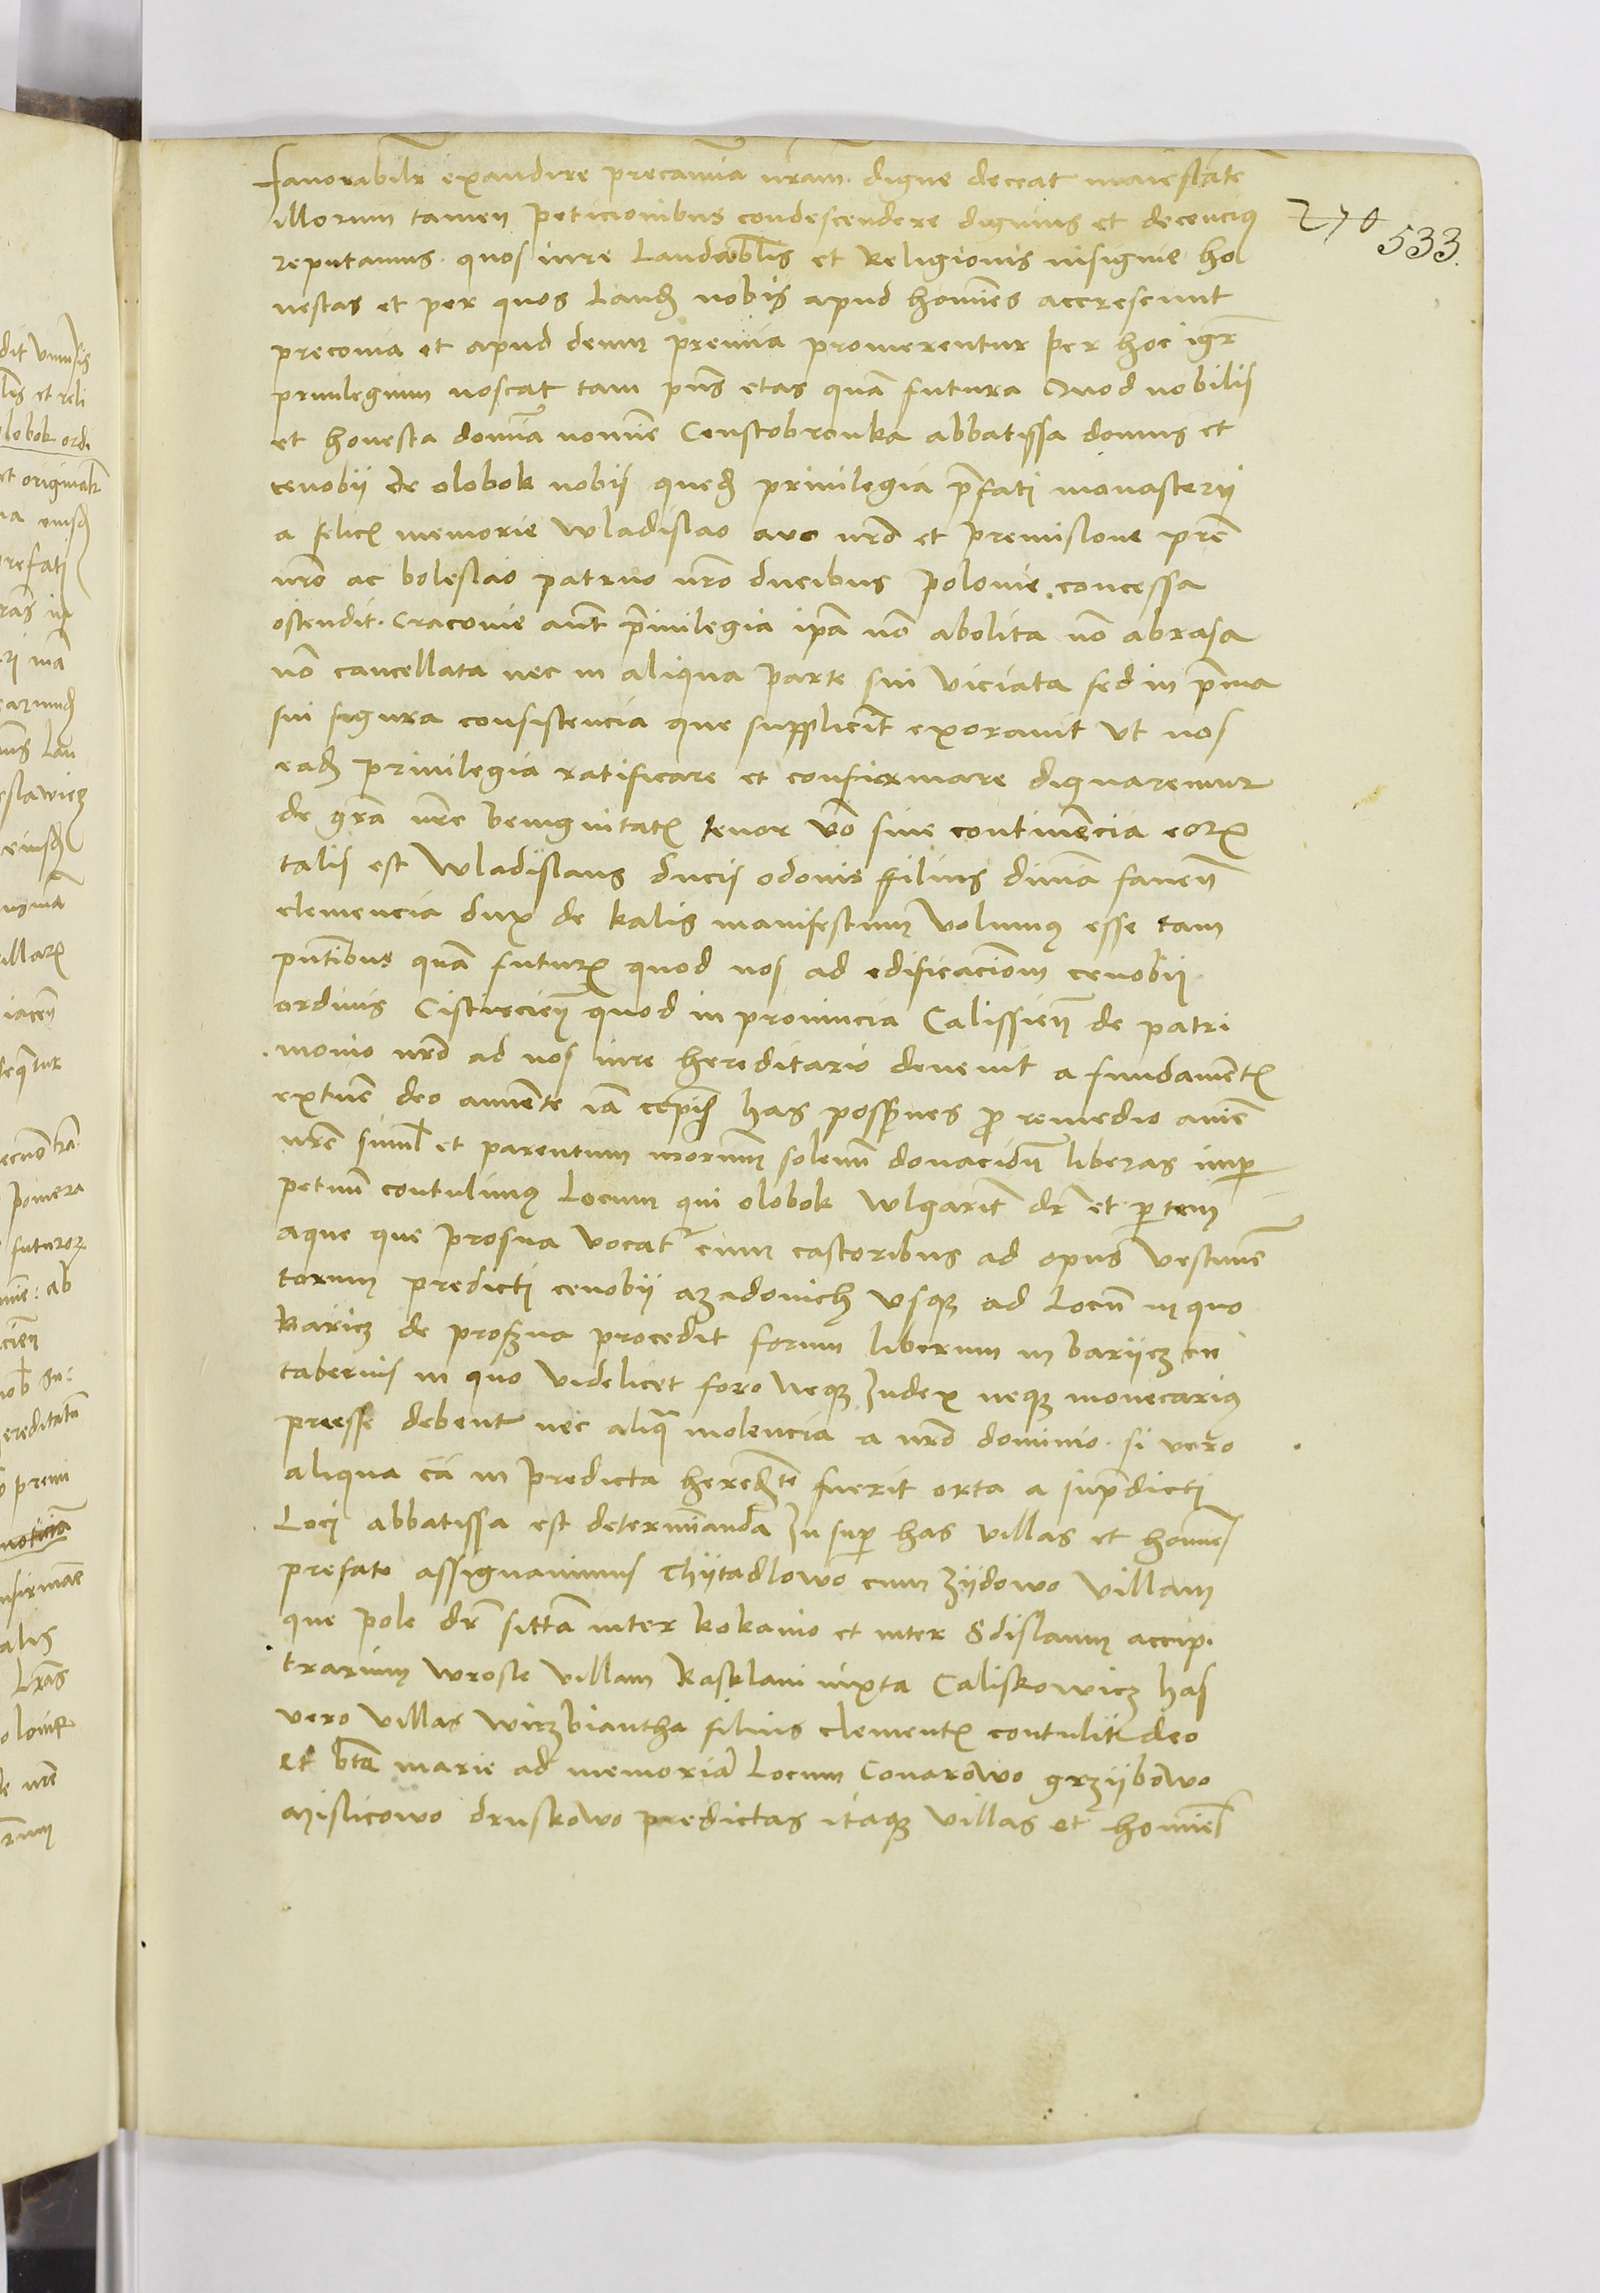 favorabilr exaudire precamina nram digne deceat maiestate
illorum tamen peticionibus condescendere dignius et decencius
270
533.
reputamus quos iure Laudabilis et Religionis insignit ho
nestas et per quos Laud nobis apud homines accrescunt
preconia et apud deum premia promerentur Per hoc igr
privilegium noscat tam pns etas qua futura Quod nobilis
et honesta domina nomine Censtobronka abbatissa domus et
cenobii de olobok nobis qued privilegia prefati monasterii
a felic memorie Wladislao avo nro et Premislone pre
nro ac boleslao patruo nro ducibus Polonie concessa
ostendit. Craconie aut privilegia ipa no abolita no abrasa
no cancellata nec in aliqua parte sui viciata sed in prima
sui figura consistencia que supplicit exoravit Ut nos
eade privilegia ratificare et confirmare dignaremur
de gra nre benignitatis tenor vo sive continencia eorum
talis est Wladislaus ducis odonis filius divina faven
clemencia dux de Kalis manifestum volumus esse tam
pntibus qua futuris quod nos ad edificaciom cenobii
ordinis Cisterciens quod in provincia Calissien de patri
monio nro ad nos iure hereditario devenit a fundamentis
extrue deo annuente iam cepim has possones pro remedio anime
nre simul et parentum nrorum solemn donacion liberas imper
petuum contulimus Locum qui olobok wlgarit dr et partem
aque que Prosna vocatr cum castoribus ad opus vestimen
torum predicti cenobii azadovich usque ad Locum in quo
Baricz de prosna procedit forum liberum in bariicz cu
tabernis in quo videlicet foro neque Iudex neque monetarius
preesse debent nec aliqua molencia a nro dominio. si vero
aliqua ca in predicta heredite fuerit orta a supradicti
Loci abbatissa est determinanda In super has villas et homines
prefato assignavimus Chytadlowo cum zydowo villam
que Pole dr sitta inter kokanio et inter Sdislaum accip
trarium Wrosle villam Rasklavi iuxta Caliskowicz has
vero villas Wirzbiantha filius clementis contulit deo
et bte marie ad memoriam Locum Conarowo grzybowo
mislicowo druskowo predictas itaque villas et homines